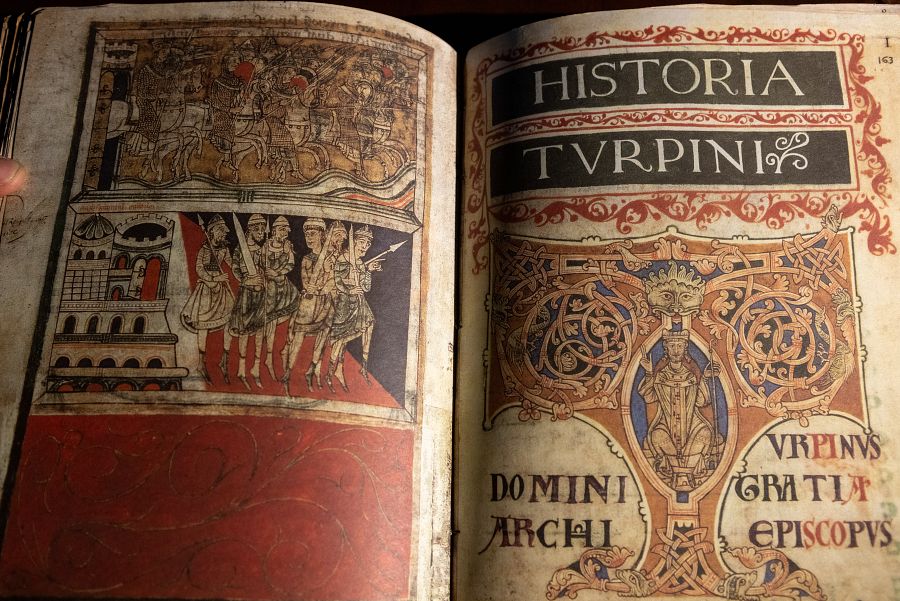 HISTORIA
TVRPINI
I
163
TVRPINVS
DOMINI GRATIA
ARCHI EPISCOPVS